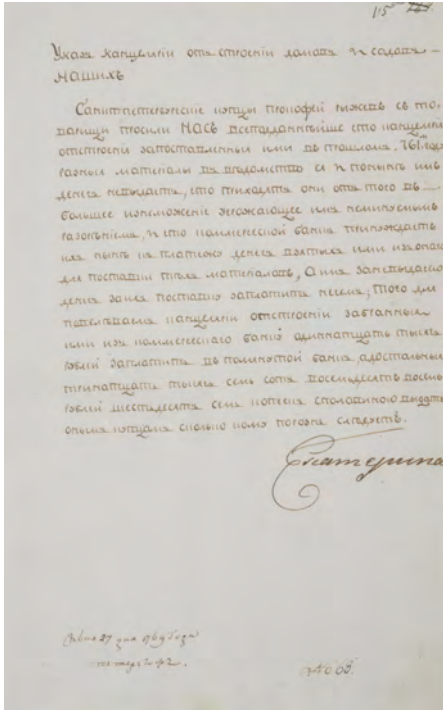 115
Указъ канцеляріи отъ строеніи домовъ и садовъ
НАШИХЪ
Санктпетербургскіе купцы Прокофей съ то-
варищи просили НАСЪ всеподданнѣйше что канцелярія
отстроеніи запоставленные ими въ прошломъ 761 году
разныя матеріалы въ вѣдомство ея и понынѣ имъ
денегъ невыдаетъ, что приходятъ они отъ того въ
большее изнеможеніе угрожающее имъ неминуемымъ
разореніемъ, и что коммерческой банкъ принуждаетъ
ихъ нынѣ къ платежу денегъ взятыхъ ими изъ онаго
для поставки тѣхъ матеріаловъ, а имъ занеимѣніемъ
денегъ за поставку заплатить нечемъ; того для
повелѣваемъ канцеляріи отстроеніи забранныя
ими изъ коммерческаго банку одиннатцать тысячь
рублей заплатить въ помянутой банкъ, адостальныя
тринатцать тысячь семь сотъ восемьдесятъ восемь
рублей шестьдесятъ семь копеекъ споловиною выдать
онымъ купцамъ сколько кому порознь слѣдуетъ.
Екатерина
27 дня 1764 года